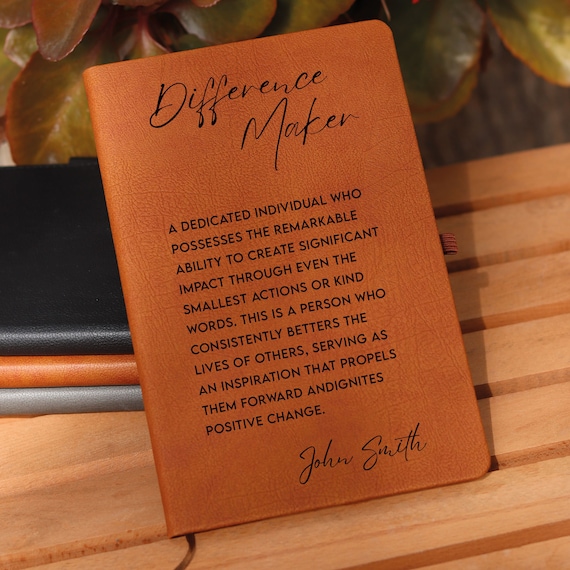 Difference
Maker
A DEDICATED INDIVIDUAL WHO
POSSESSES THE REMARKABLE
ABILITY TO CREATE SIGNIFICANT
IMPACT THROUGH EVEN THE
SMALLEST ACTIONS OR KIND
WORDS. THIS IS A PERSON WHO
CONSISTENTLY BETTERS THE
LIVES OF OTHERS, SERVING AS
AN INSPIRATION THAT PROPELS
THEM FORWARD ANDIGNITES
POSITIVE CHANGE.
John Smith